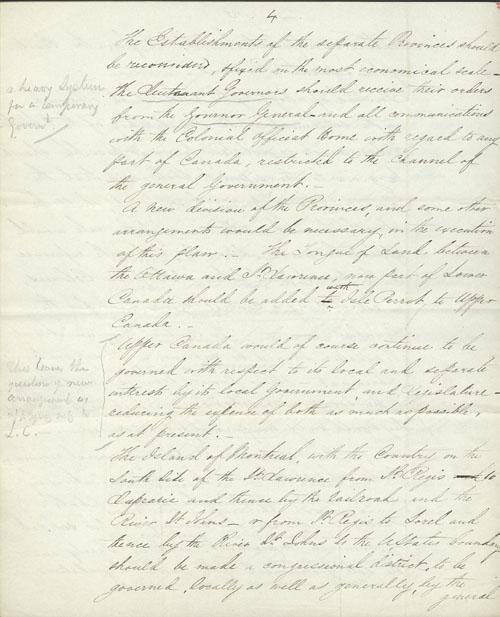 4
The Establishments of the separate Provinces should
be reconsidered, & fixed on the most economical scale –
the Lieutenant Governors should receive their orders
from the Governor General – and all communications
with the Colonial Office at Home with regard to any
part of Canada, restricted to the channel of
the general Government. –
a heavy System
for a temporary
Governt.
A new division of the Provinces, and some other
arrangements would be necessary, in the execution
of this plan. – The Tongue of Land between
the Ottawa and St. Lawrence, now part of Lower
Canada should be added with Isle Perrot, to Upper
Canada. –
Upper Canada would of course continue to be
governed with respect to its local and separate
interests by its local Government, and Legislature –
reducing the expense of both as much as possible,
as at present. –
This leaves the
question of new
arrangement as
L. C.
The Island of Montreal, with the Country on the
South Side of the St. Lawrence from St. Regis to
Laprarie and thence by the Railroad and the
River St. Johns – or from St. Regis to Sorel and
thence by the River St. Johns to the U States boundary
should be made a congressional district, to be
governed, locally as well as generally, by the
general